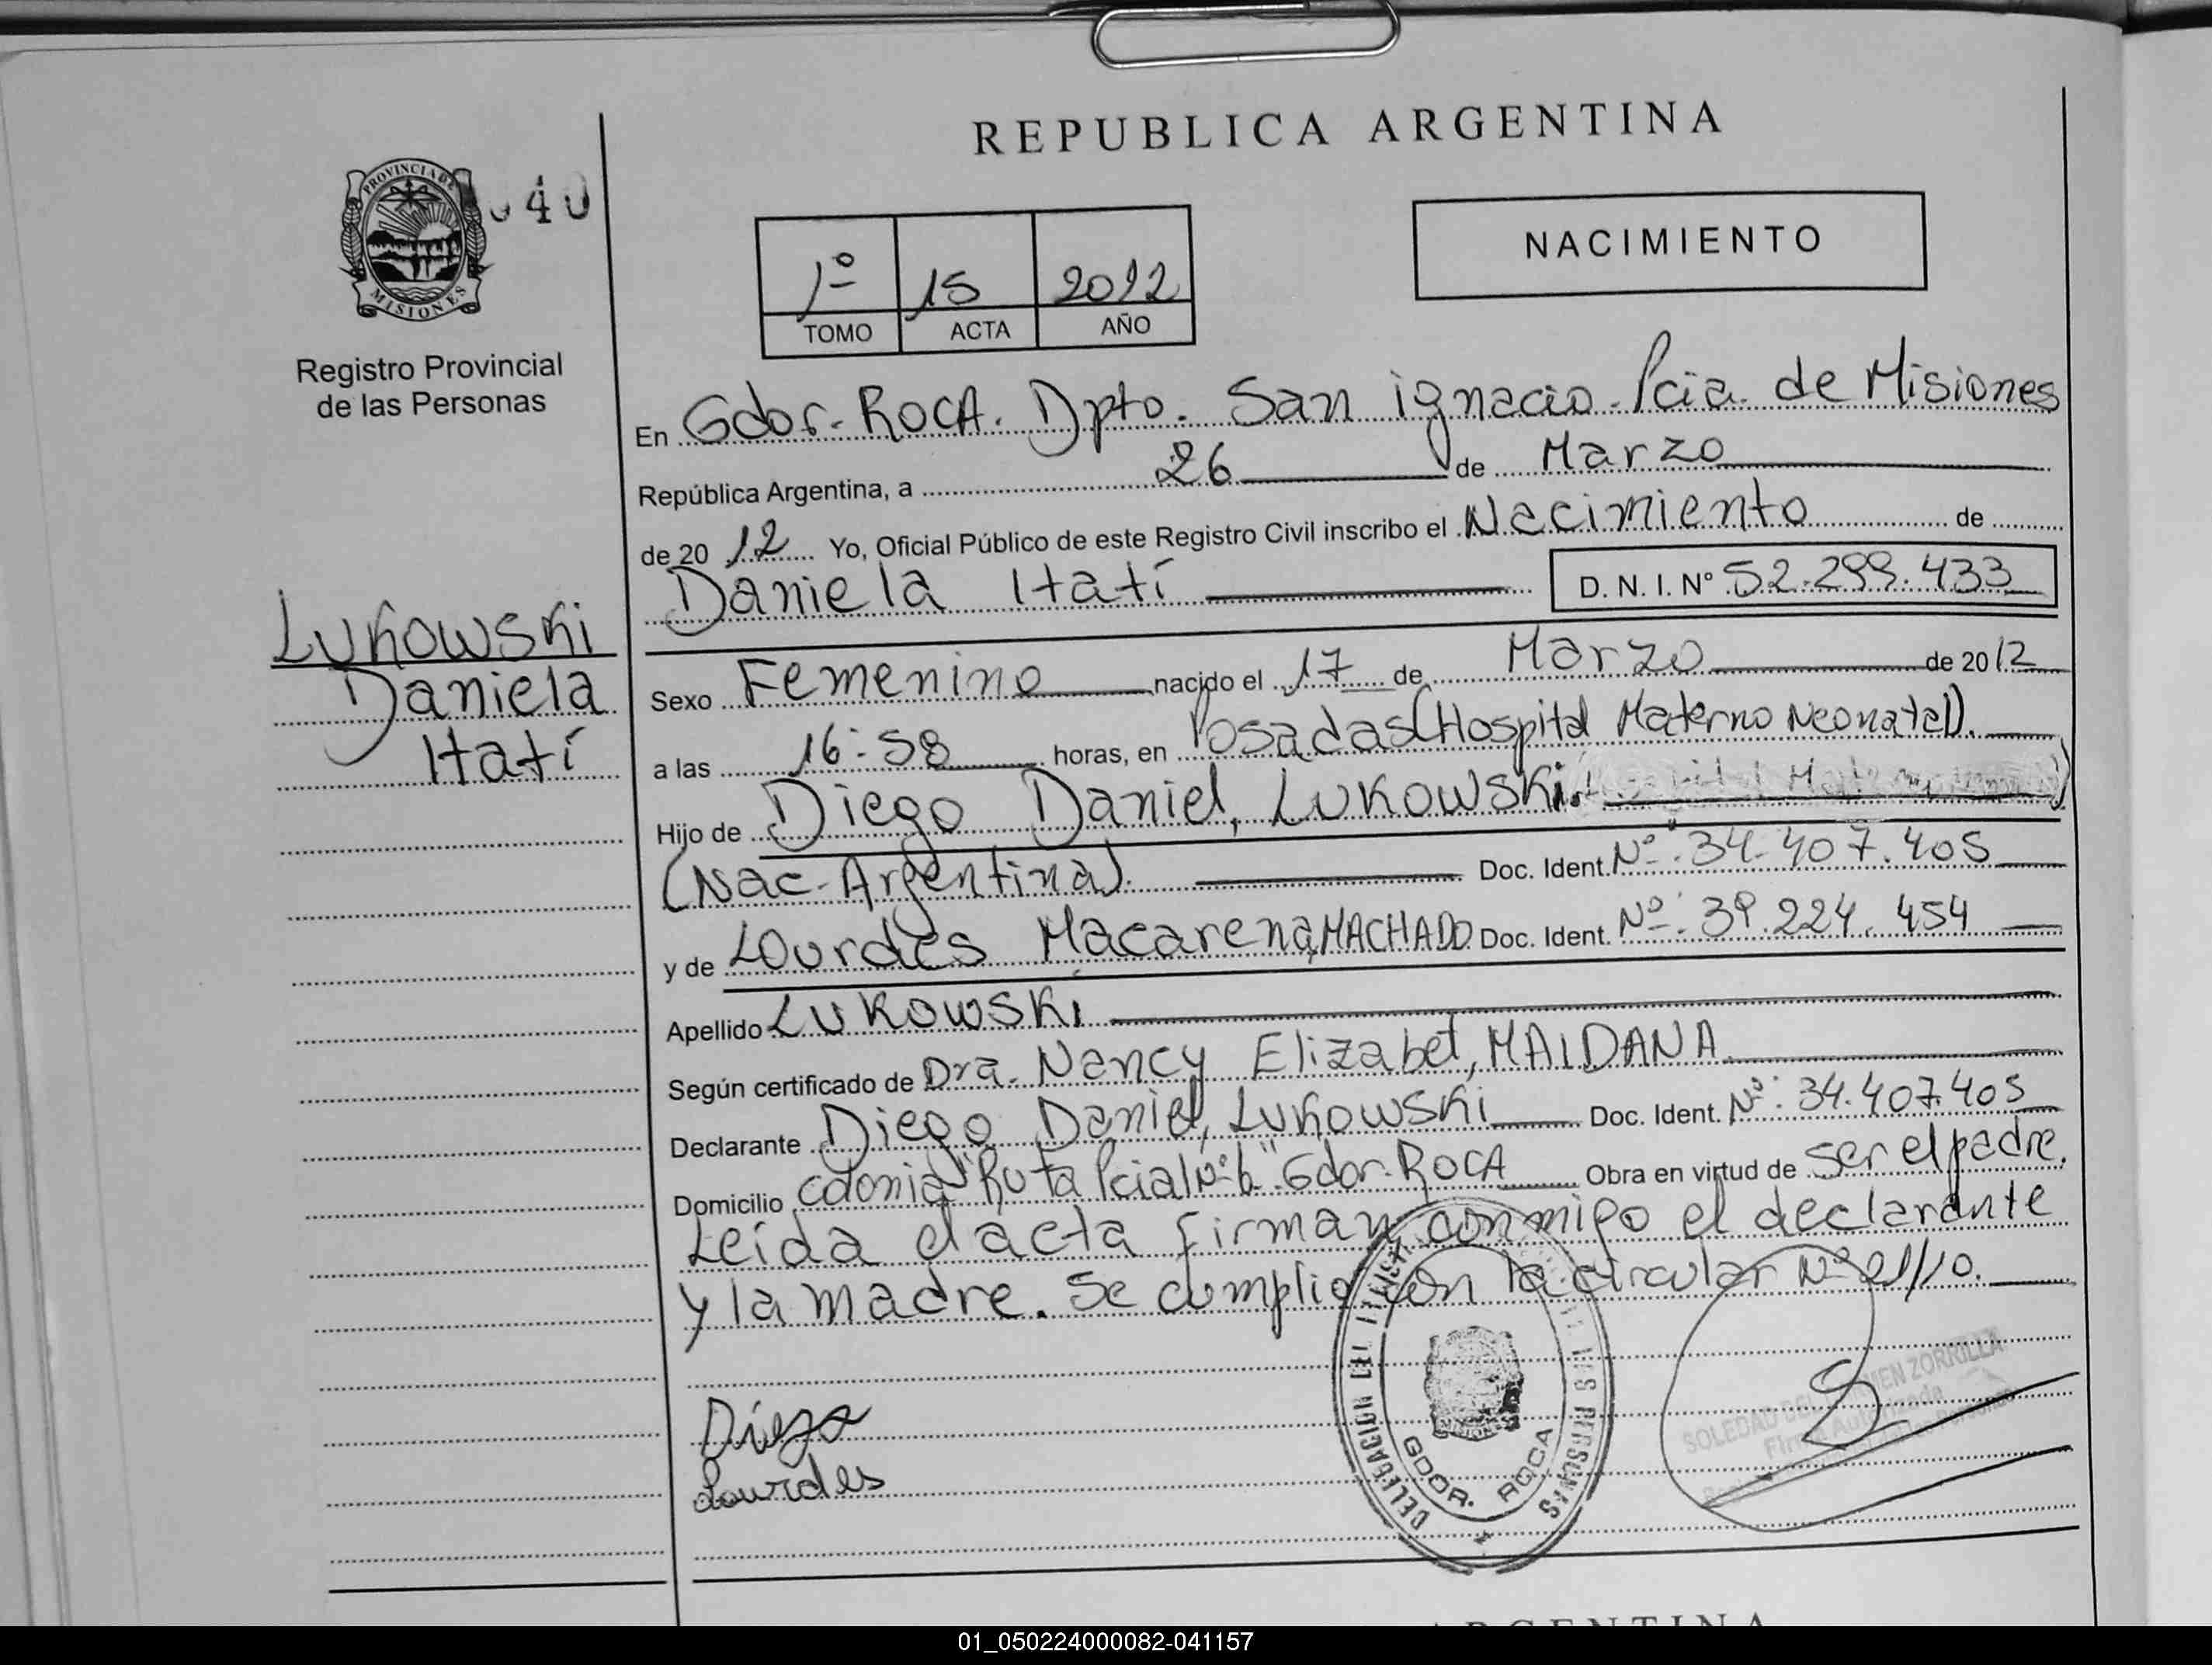 REPUBLICA ARGENTINA
PROVINCIA DE
MISIONES
040
NACIMIENTO
1º 15 2012
TOMO ACTA AÑO
Registro Provincial
de las Personas
En Gdor. ROCA. Dpto. San ignacio. Pcia. de Misiones
República Argentina, a 26 de Marzo
de 2012 Yo, Oficial Público de este Registro Civil inscribo el Nacimiento de
Daniela Itatí D. N. I. Nº 52.299.433
Lukowski
Daniela
Itatí
Sexo Femenino nacido el 17 de Marzo de 2012
a las 16:58 horas, en Posadas (Hospital Materno Neonatal).
Hijo de Diego Daniel, Lukowski.
(Nac. Argentina). Doc. Ident. Nº: 34.407.405
y de Lourdes Macarena, MACHADO Doc. Ident. Nº: 39.224.454
Apellido Lukowski
Según certificado de Dra. Nancy Elizabet, MAIDANA
Declarante Diego Daniel, Lukowski Doc. Ident. Nº: 34.407.405
Domicilio colonia "Ruta Pcial Nº 6" Gdor. ROCA Obra en virtud de ser el padre.
Leída el acta firman conmigo el declarante
y la madre. Se cumplio con la circular Nº 21/10.
SOLEDAD DEL CARMEN ZORRILLA
Firma Autorizada
Diego
Lourdes
DELEGACION DEL
DE LAS PERSONAS
GDOR. ROCA
ARGENTINA
01_050224000082-041157